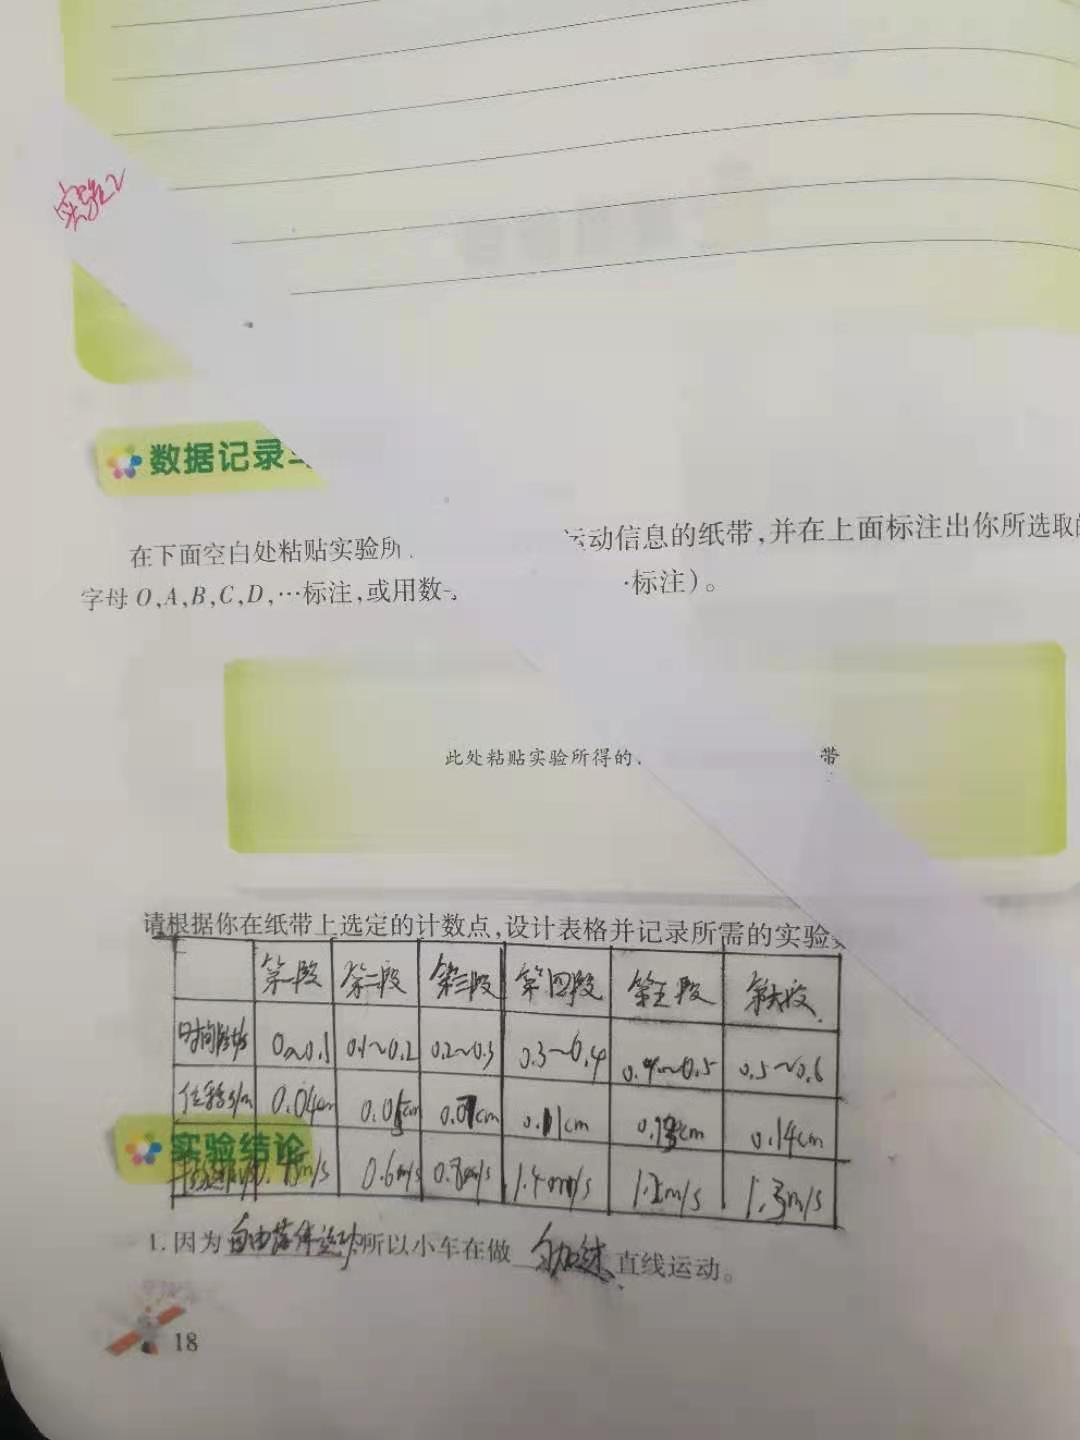 实验2
数据记录
在下面空白处粘贴实验所
运动信息的纸带,并在上面标注出你所选取的
字母O,A,B,C,D,…标注,或用数
标注)。
此处粘贴实验所得的
带
请根据你在纸带上选定的计数点,设计表格并记录所需的实验
第一段 第二段 第三段 第四段 第五段 第六段
0~0.1 0.1~0.2 0.2~0.3 0.3~0.4 0.4~0.5 0.5~0.6
位移s/m 0.04cm 0.05cm 0.07cm 0.11cm 0.13cm 0.14cm
实验结论
m/s 0.6m/s 0.8m/s 1.4m/s 1.2m/s 1.3m/s
1.因为自由落体运动所以小车在做 匀加速 直线运动。
18